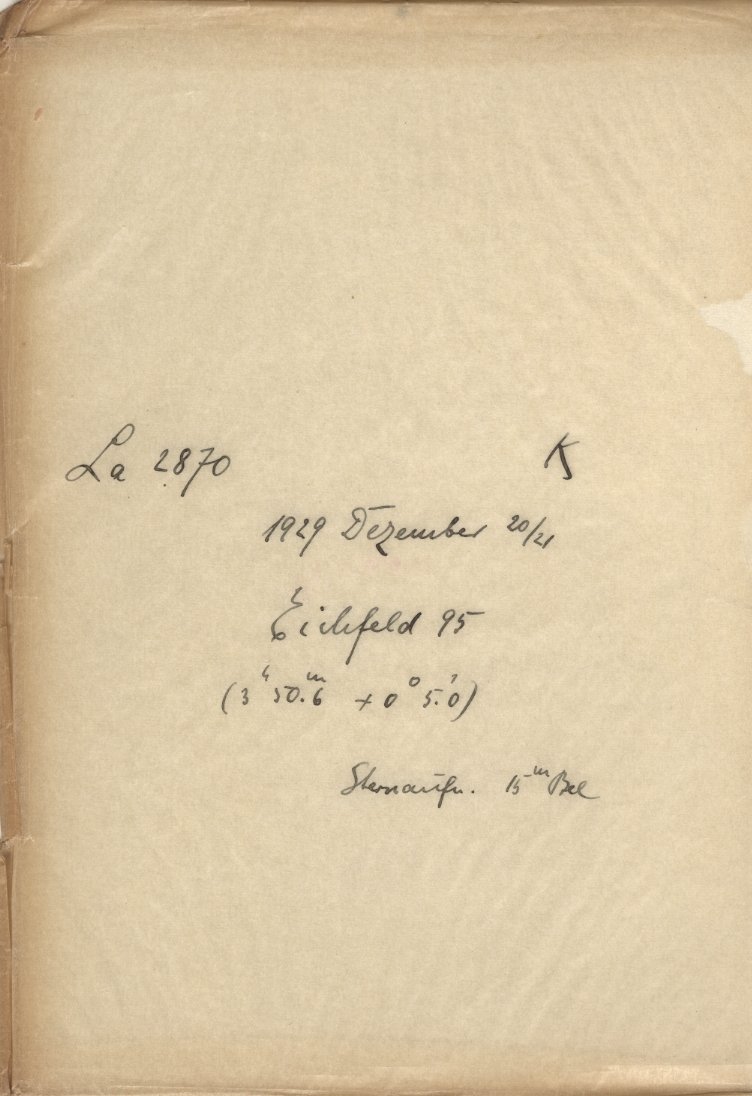 La 2870 K
1929 Dezember 20/21
Eichfeld 95
(3ʰ 50.ᵐ6 + 0° 5.'0)
Sternaufn. 15ᵐ Bel